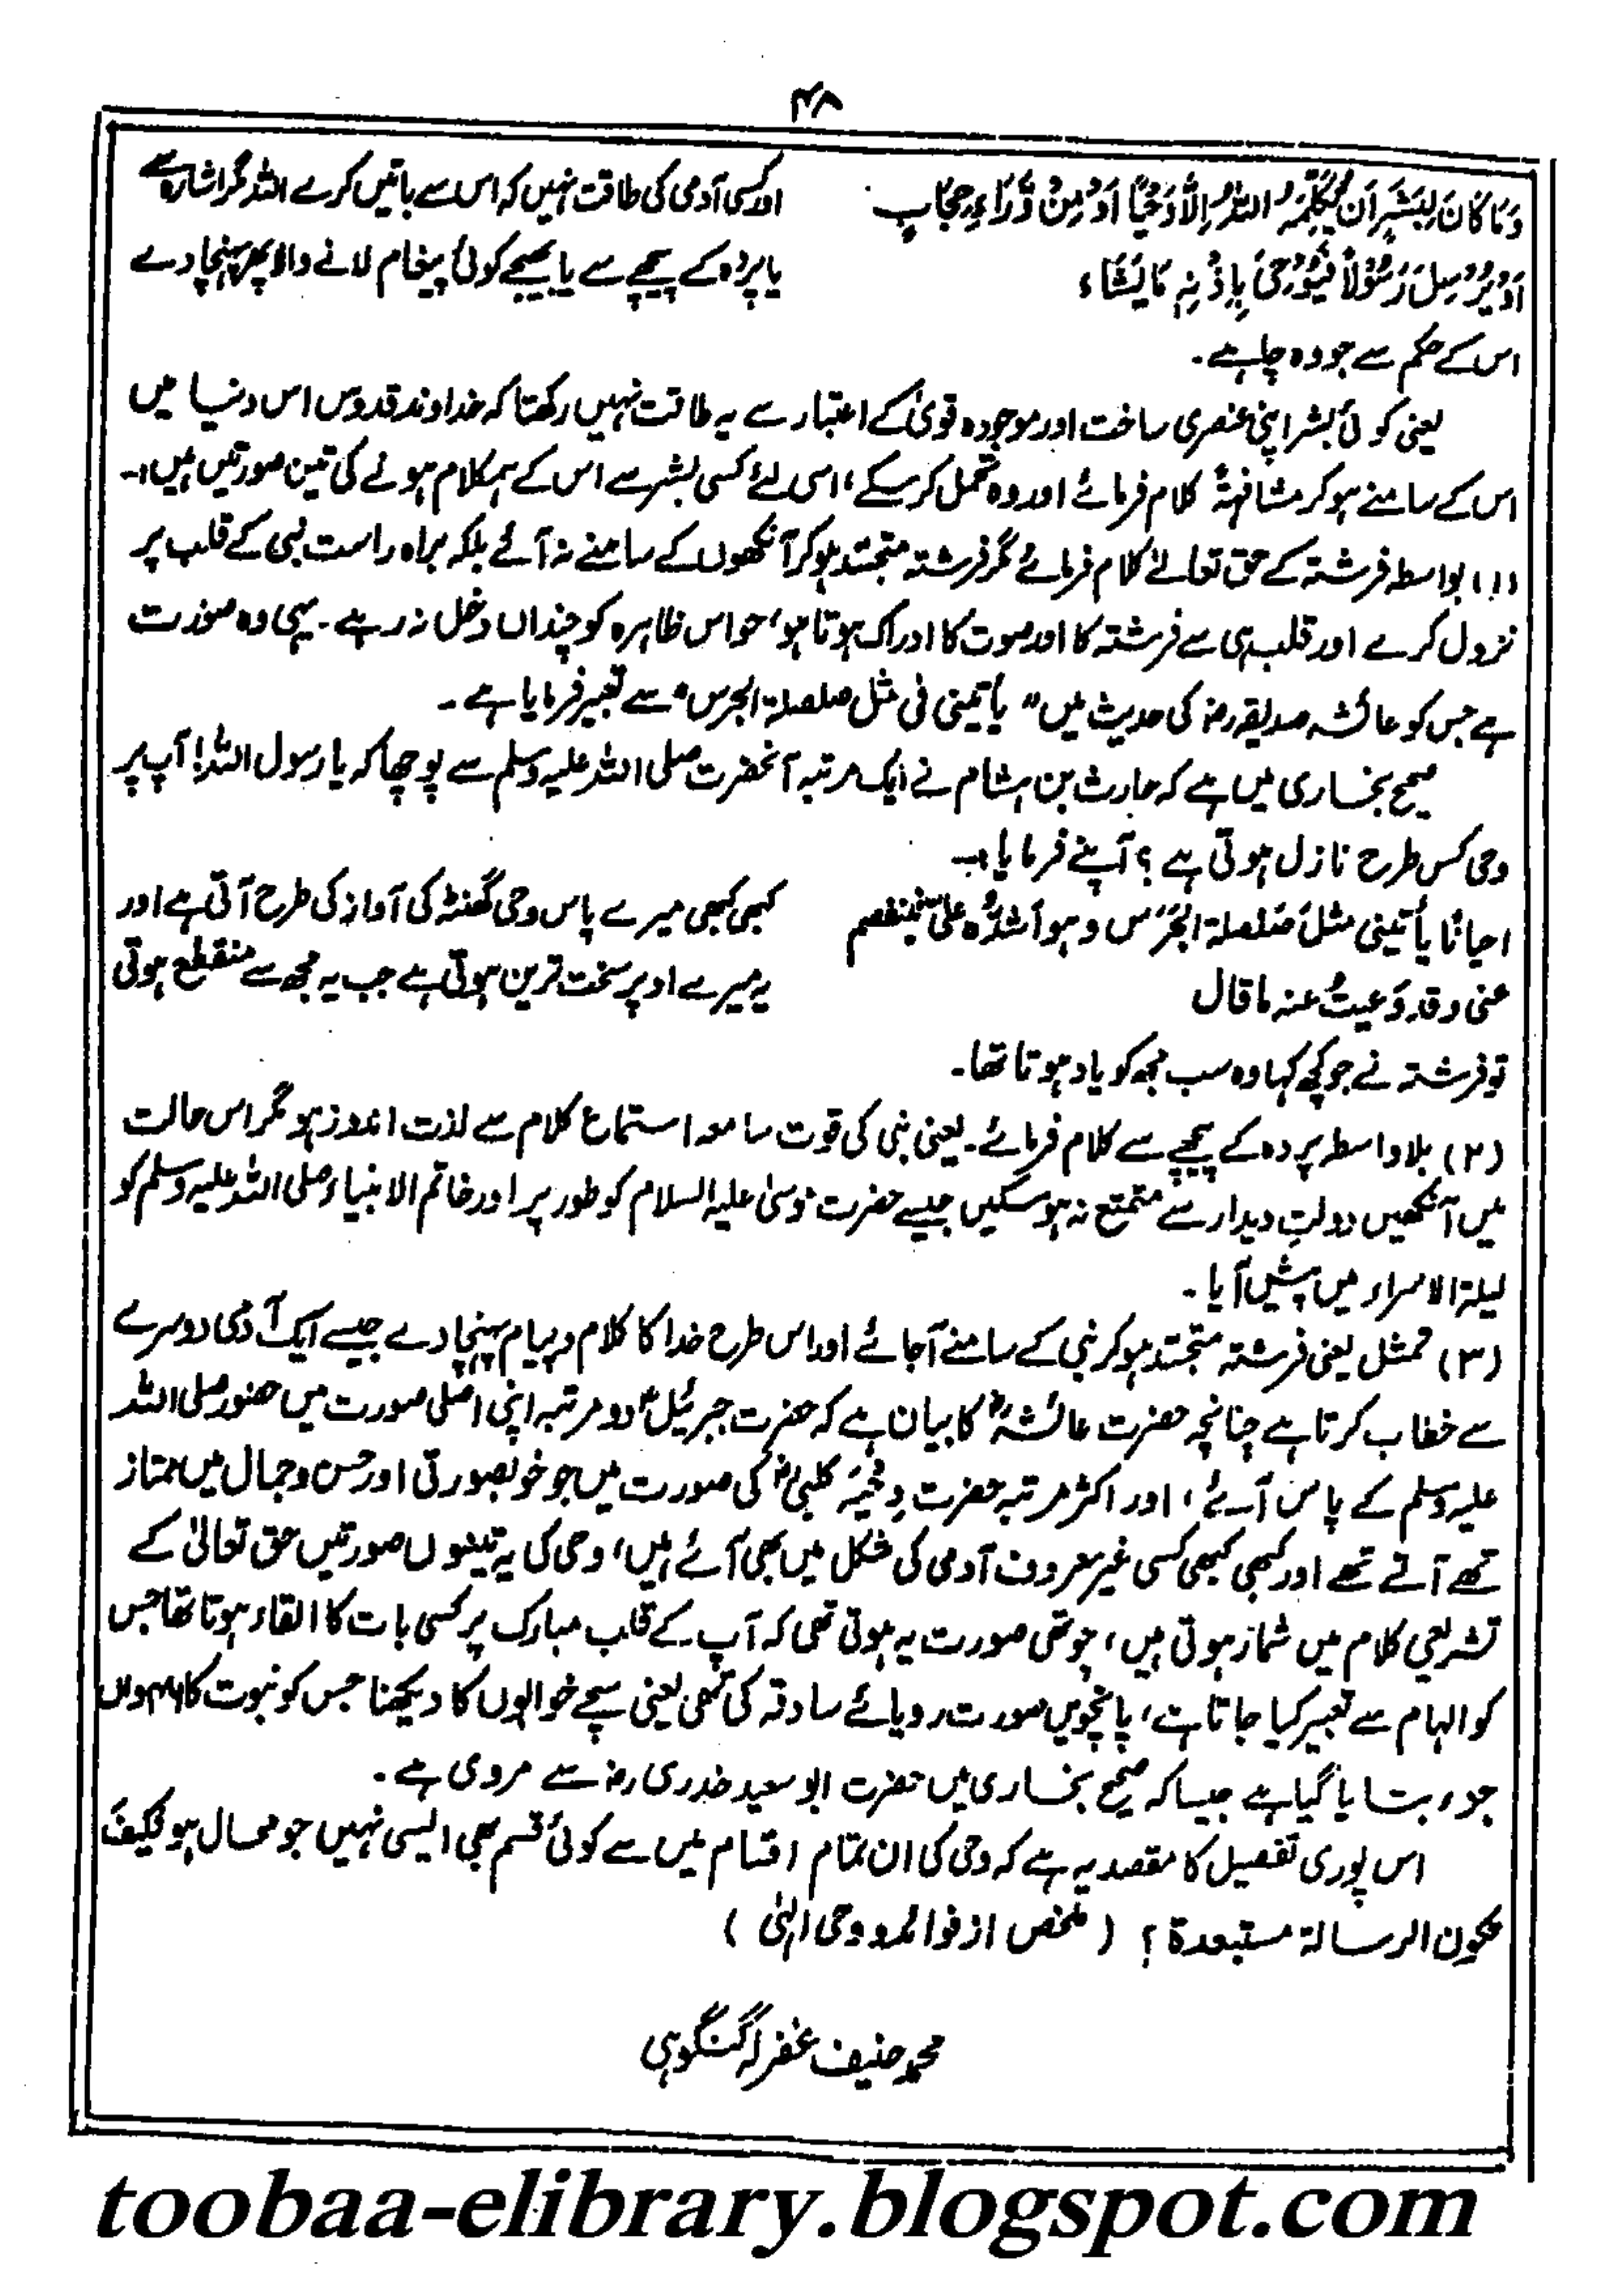 ۴۸
وَمَا كَانَ لِبَشَرٍ اَن يُّكَلِّمَهُ اللّٰهُ اِلَّا وَحْيًا اَوْ مِنْ وَّرَاءِ حِجَابٍ
اَوْ يُرْسِلَ رَسُوْلًا فَيُوْحِيَ بِاِذْنِهٖ مَا يَشَاء
اور کسی آدمی کی طاقت نہیں کہ اس سے باتیں کرے اللہ مگر اشارہ سے
یا پردہ کے پیچھے سے یا بھیجے کوئی پیغام لانے والا پھر پہنچا دے
اس کے حکم سے جو وہ چاہے۔
یعنی کوئی بشر اپنی عنصری ساخت اور موجودہ قویٰ کے اعتبار سے یہ طاقت نہیں رکھتا کہ خداوند قدوس اس دنیا میں
اس کے سامنے ہو کر مشافہۃً کلام فرمائے اور وہ تحمل کر سکے، اسی لئے کسی بشر سے اس کے ہمکلام ہونے کی تین صورتیں ہیں:۔
(۱) بواسطہ فرشتہ کے حق تعالےٰ کلام فرمائے مگر فرشتہ متجسّد ہو کر آنکھوں کے سامنے نہ آئے بلکہ براہ راست نبی کے قلب پر
نزول کرے اور قلب ہی سے فرشتہ کا اور صوت کا ادراک ہوتا ہو، حواس ظاہرہ کو چنداں دخل نہ رہے۔ یہی وہ صورت
ہے جس کو عائشہ صدیقہ رضہ کی حدیث میں" یأتینی فی مثل صلصلۃ الجرس" سے تعبیر فرمایا ہے۔
صحیح بخاری میں ہے کہ حارث بن ہشام نے ایک مرتبہ آنحضرت صلی اللہ علیہ وسلم سے پوچھا کہ یا رسول اللہ! آپ پر
وحی کس طرح نازل ہوتی ہے؟ آپنے فرمایا:۔
احیانًا یأتینی مثلَ صَلصلۃ الجَرَس وہو اَشَدُّہ علیَّ فیُفصَم
عنی وقد وَعیتُ عنہ ما قال
کبھی کبھی میرے پاس وحی گھنٹہ کی آواز کی طرح آتی ہے اور
یہ میرے اوپر سخت ترین ہوتی ہے جب یہ مجھ سے منقطع ہوتی
تو فرشتہ نے جو کچھ کہا وہ سب مجھ کو یاد ہوتا تھا۔
(۲) بلا واسطہ پردہ کے پیچھے سے کلام فرمائے۔ یعنی نبی کی قوت سامعہ استماع کلام سے لذت اندوز ہو مگر اس حالت
میں آنکھیں دولتِ دیدار سے متمتع نہ ہو سکیں جیسے حضرت موسیٰ علیہ السلام کو طور پر اور خاتم الانبیاء صلی اللہ علیہ وسلم کو
لیلۃ الاسراء میں پیش آیا۔
(۳) تمثل یعنی فرشتہ متجسّد ہو کر نبی کے سامنے آجائے اور اس طرح خدا کا کلام و پیام پہنچا دے جیسے ایک آدمی دوسرے
سے خطاب کرتا ہے چنانچہ حضرت عائشہؓ کا بیان ہے کہ حضرت جبرئیلؑ دو مرتبہ اپنی اصلی صورت میں حضور صلی اللہ
علیہ وسلم کے پاس آئے، اور اکثر مرتبہ حضرت دِحیَہ کلبیؓ کی صورت میں جو خوبصورتی اور حسن وجمال میں ممتاز
تھے آتے تھے اور کبھی کبھی کسی غیر معروف آدمی کی شکل میں بھی آئے ہیں، وحی کی یہ تینوں صورتیں حق تعالیٰ کے
تشریعی کلام میں شمار ہوتی ہیں، چوتھی صورت یہ ہوتی تھی کہ آپ کے قلب مبارک پر کسی بات کا القاء ہوتا تھا جس
کو الہام سے تعبیر کیا جاتا ہے، پانچویں صورت رویائے صادقہ کی تھی یعنی سچے خوابوں کا دیکھنا جس کو نبوت کا ۴۶ واں
جوء بتایا گیا ہے جیسا کہ صحیح بخاری میں حضرت ابو سعید خدری رضہ سے مروی ہے۔
اس پوری تفصیل کا مقصد یہ ہے کہ وحی کی ان تمام اقسام میں سے کوئی قسم بھی ایسی نہیں جو محال ہو فکیفَ
تکون الرسالۃ مستبعدۃ؟ (ملخص از فوائد ووحی الٰہی)
محمد حنیف غفرلہ گنگوہی
toobaa-elibrary.blogspot.com